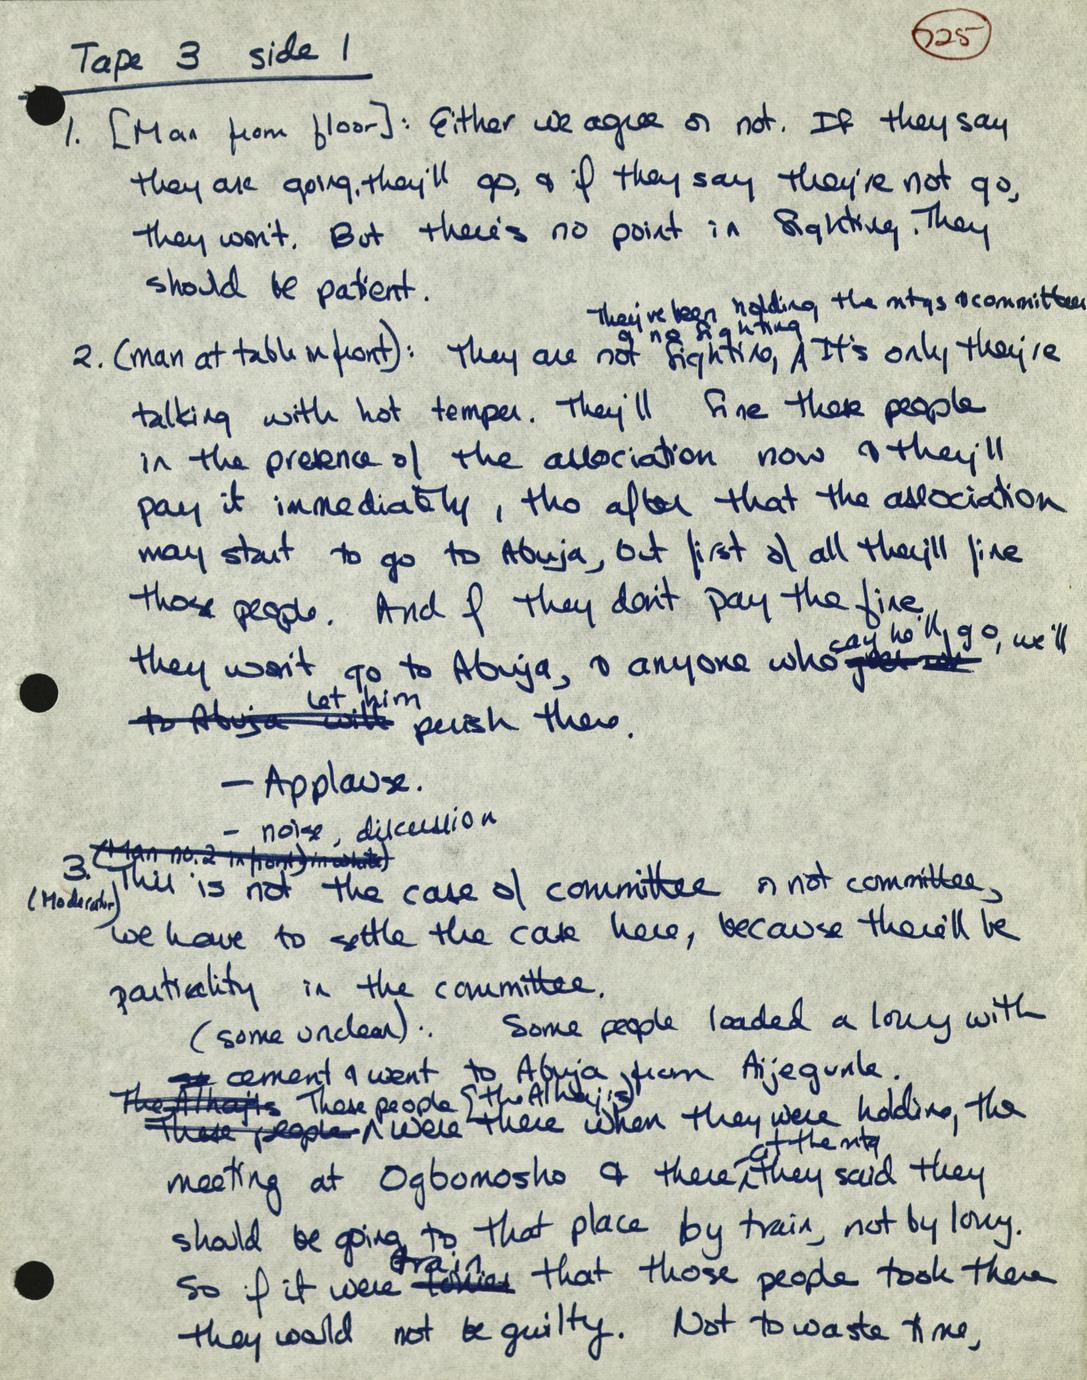 525
Tape 3 side 1
1. [Man from floor]: Either we agree or not. If they say
they are going, they'll go, & if they say they're not go,
they won't. But there's no point in fighting. They
should be patient.
They've been holding the mtgs & committees
& no fighting
2. (man at table in front): They are not fighting, ^ It's only they're
talking with hot temper. They'll fine these people
in the presence of the association now & they'll
pay it immediately, tho after that the association
may start to go to Abuja, but first of all they'll fine
those people. And if they don't pay the fine,
say he'll go, we'll
they won't go to Abuja, & anyone who
let him
to Abuja will perish there.
— Applause.
- noise, discussion
(Man no. 2 in front) in white)
3. This is not the case of committee or not committee,
(Moderator)
we have to settle the case here, because there'll be
partiality in the committee.
(some unclear).. Some people loaded a lorry with
cement & went to Abuja from Aijegunle.
The Alhajis These people [the Alhajis]
These people ^ were there when they were holding the
at the mtg
meeting at Ogbomosho & there ^ they said they
should be going to that place by train, not by lorry.
train
So if it were that those people took there
they would not be guilty. Not to waste time,